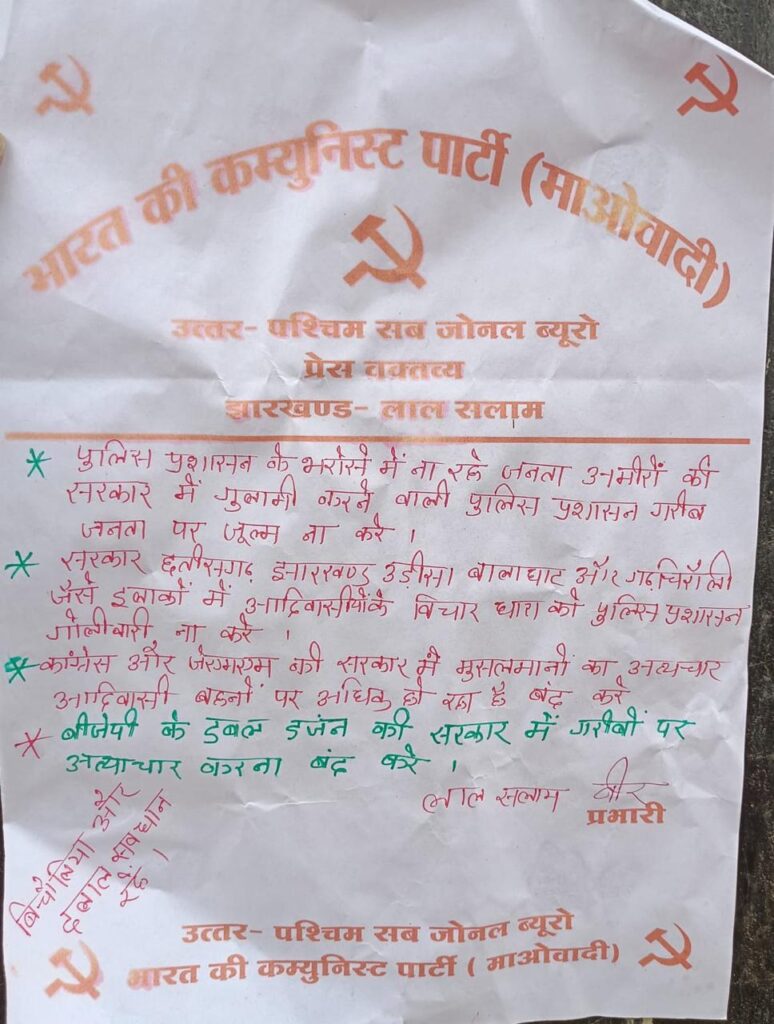 भारत की कम्युनिस्ट पार्टी (माओवादी)
उत्तर- पश्चिम सब जोनल ब्यूरो
प्रेस वक्तव्य
झारखण्ड- लाल सलाम
* पुलिस प्रशासन के भरोसे में ना रहे जनता अमीरों की
सरकार में गुलामी करने वाली पुलिस प्रशासन गरीब
जनता पर जूल्म ना करे ।
* सरकार छतीसगढ़ झारखण्ड उड़ीसा बालाघाट और गढ़चिरौली
जैसे इलाकों में आदिवासीयोंके विचार धारा को पुलिस प्रशासन
गोलीबारी ना करे ।
* कांग्रेस और जेएमएम की सरकार में मुसलमानों का अत्यचार
आदिवासी बहनों पर अधिक हो रहा है बंद करे
* बीजेपी के डबल इजंन की सरकार में गरीबों पर
अत्याचार करना बंद करे ।
लाल सलाम
प्रभारी
बिचौलिया और
दलाल सवधान
रहे ।
उत्तर- पश्चिम सब जोनल ब्यूरो
भारत की कम्युनिस्ट पार्टी ( माओवादी)